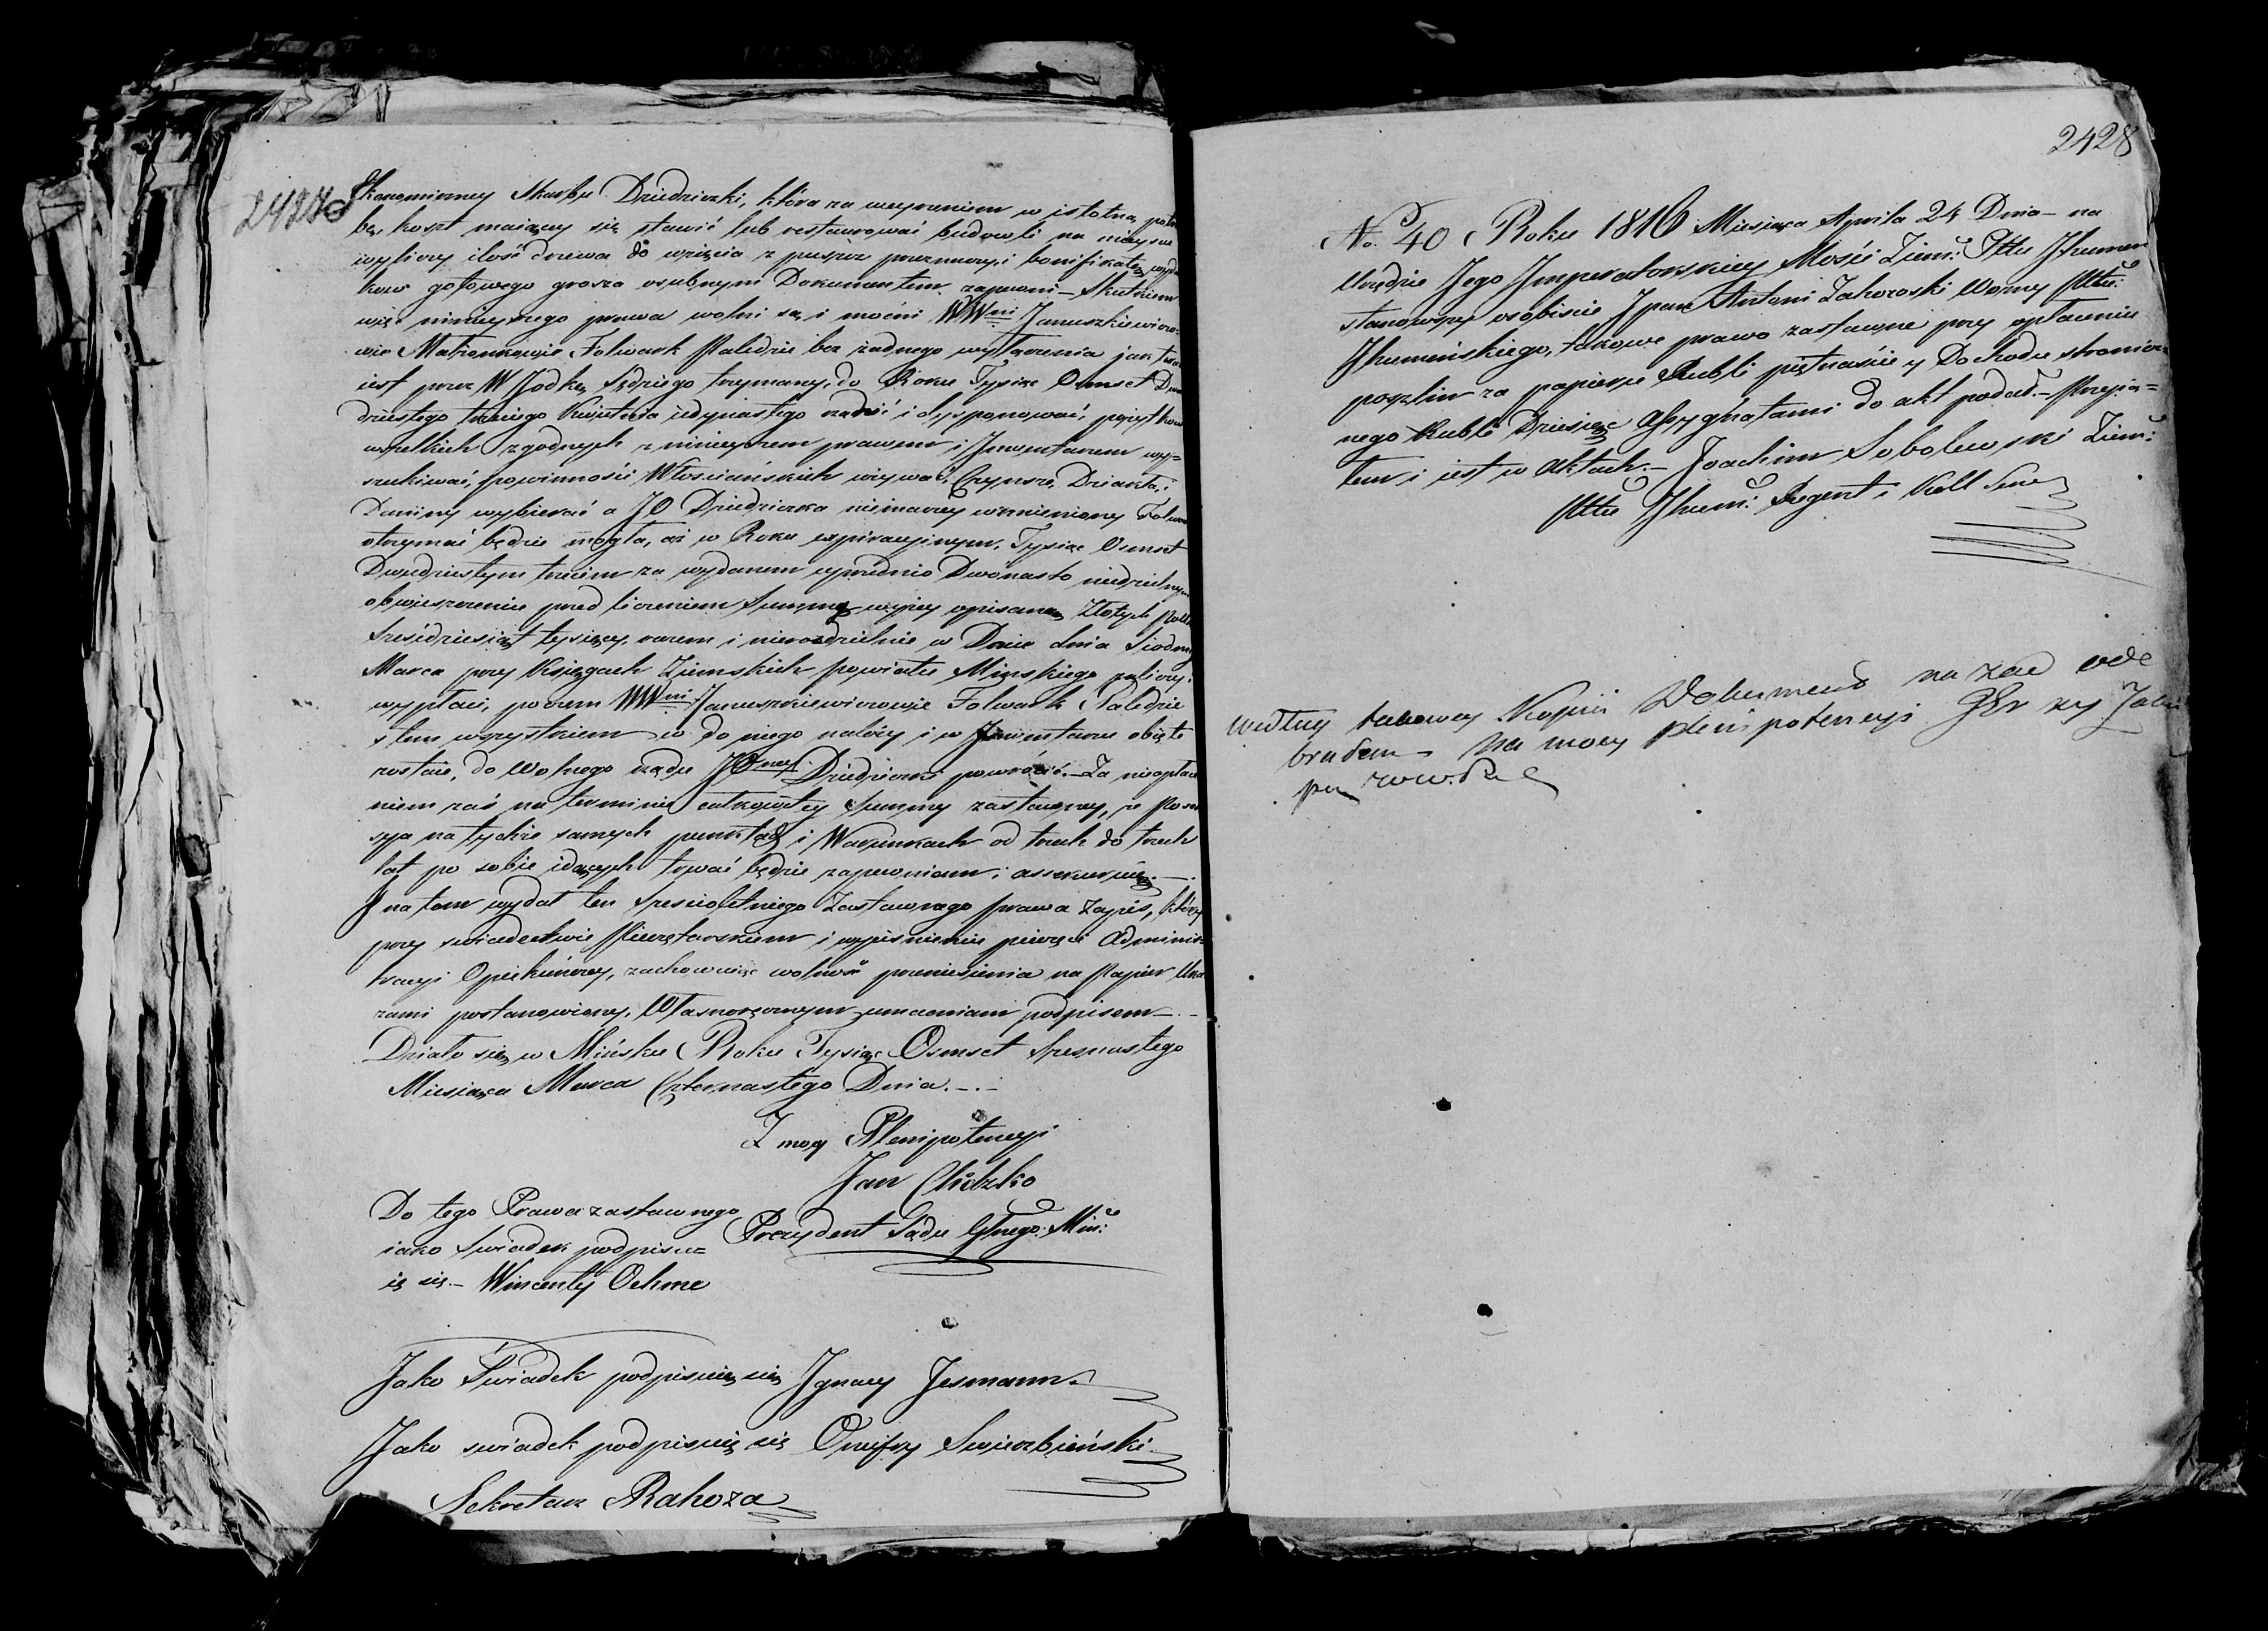 Ekonomiczney Skarbu Dziedziczki, która za weyrzeniem w istotną potrze
bę, koszt maiącey się stawić lub restaurować budowli na
wyliczy ilość drzewa do wzięcia z puszcz przeznaczy, i bonifikatę wydat
kow gotowego grosza osobnym Dokumentem zapewni – Skutkiem
więc ninieyszego prawa wolni są i mocni WWni Januszkiewiczo-
wie Małżonkowie Folwark Paledzie bez żadnego wyłączenia jak teraz
iest przez W Jodkę Sędziego trzymany, do Roku Tysiąc Osmset Dwu
dziestego trzeciego Kwietnia iedynastego rządzić i dysponować, pożytkow
wszelkich zgodnych z ninieyszem prawem i Jnwentarzem wy=
szukiwać, powinności Włosciańskich używać, Czynsze, Dziakła, i
Daniny wybierać a JO Dziedziczka nieinaczey wzmieniony Folwark
otrzymać będzie mogła, aż w Roku expiracyinym, Tysiąc Osmset
Dwudziestym trzecim za wydanem uprzednio Dwónasto niedzielnym
obwieszczeniu przed liczeniem Summę wyżey opisaną Złotych Polskich
Sześćdziesiąt tysięcy, razem i nierozdzielnie w Dniu dnia Siodmym
Marca przy Xięgach Ziemskich powiatu Minskiego zaliczy i
wypłaci, poczem WWni Januszkiewiczowie Folwark Paledzie
z tem wszystkiem co do niego należy i w Jnwentarzu obięte
zostaie, do Wolnego rządu JOney Dziedziczki powrócić. – Za nieopłace
niem zaś na terminie całkowitey Summy zastawney, że Posse
sya na tychże samych punktach i Warunkach od trzech do trzech
lat po sobie idących trwać będzie zapewniam i assekuruię. –
J na tem wydał ten Sześcioletniego Zastawnego prawa Zapis, który
przy swiadectwie Pieczętarskiem i wyciśnieniu pieczęci Adminis=
tracyi Opiekuńczey, zachowuiąc wolność przeniesienia na Papier Uka
zami postanowiony, Własnoręcznym umacniam podpisem –
Działo się w Mińsku Roku Tysiąc Osmset Szesnastego
Miesiąca Marca Czternastego Dnia. –
Z mocy Plenipotencyi
Jan Chodzko
Prezydent Sądu Głnego Miń:
Do tego Prawa zastawnego
iako Swiadek podpisu=
ię się – Wincenty Oehme
Jako Swiadek podpisuię się Jgnacy Jesmann
Jako swiadek podpisuię się Onufry Swierzbieński
Sekretarz Rahoza
2428
No. 40 Roku 1816 Miesiąca Apryla 24 Dnia – na
Urzędzie Jego Jmperatorskiey Mości Ziem: Pttu Jhumen
stanowszy osobiscie Jpan Antoni Zahorski Wozny Pttu
Jhumińskiego, takowe prawo zastawne przy opłaceniu
poszlin za papierze Rubli piętnaście y Dochodu stronicz=
nego Rubli Dziesięć Assygnatami do akt podał. – Przyię=
tem i iest w Aktach. – Joachim Sobolewski Ziem:
Pttu Jhum: Regent i Koll Sekr
według takowey Kopii Dokument na zad ode
brałem – na mocy plenipotencyi